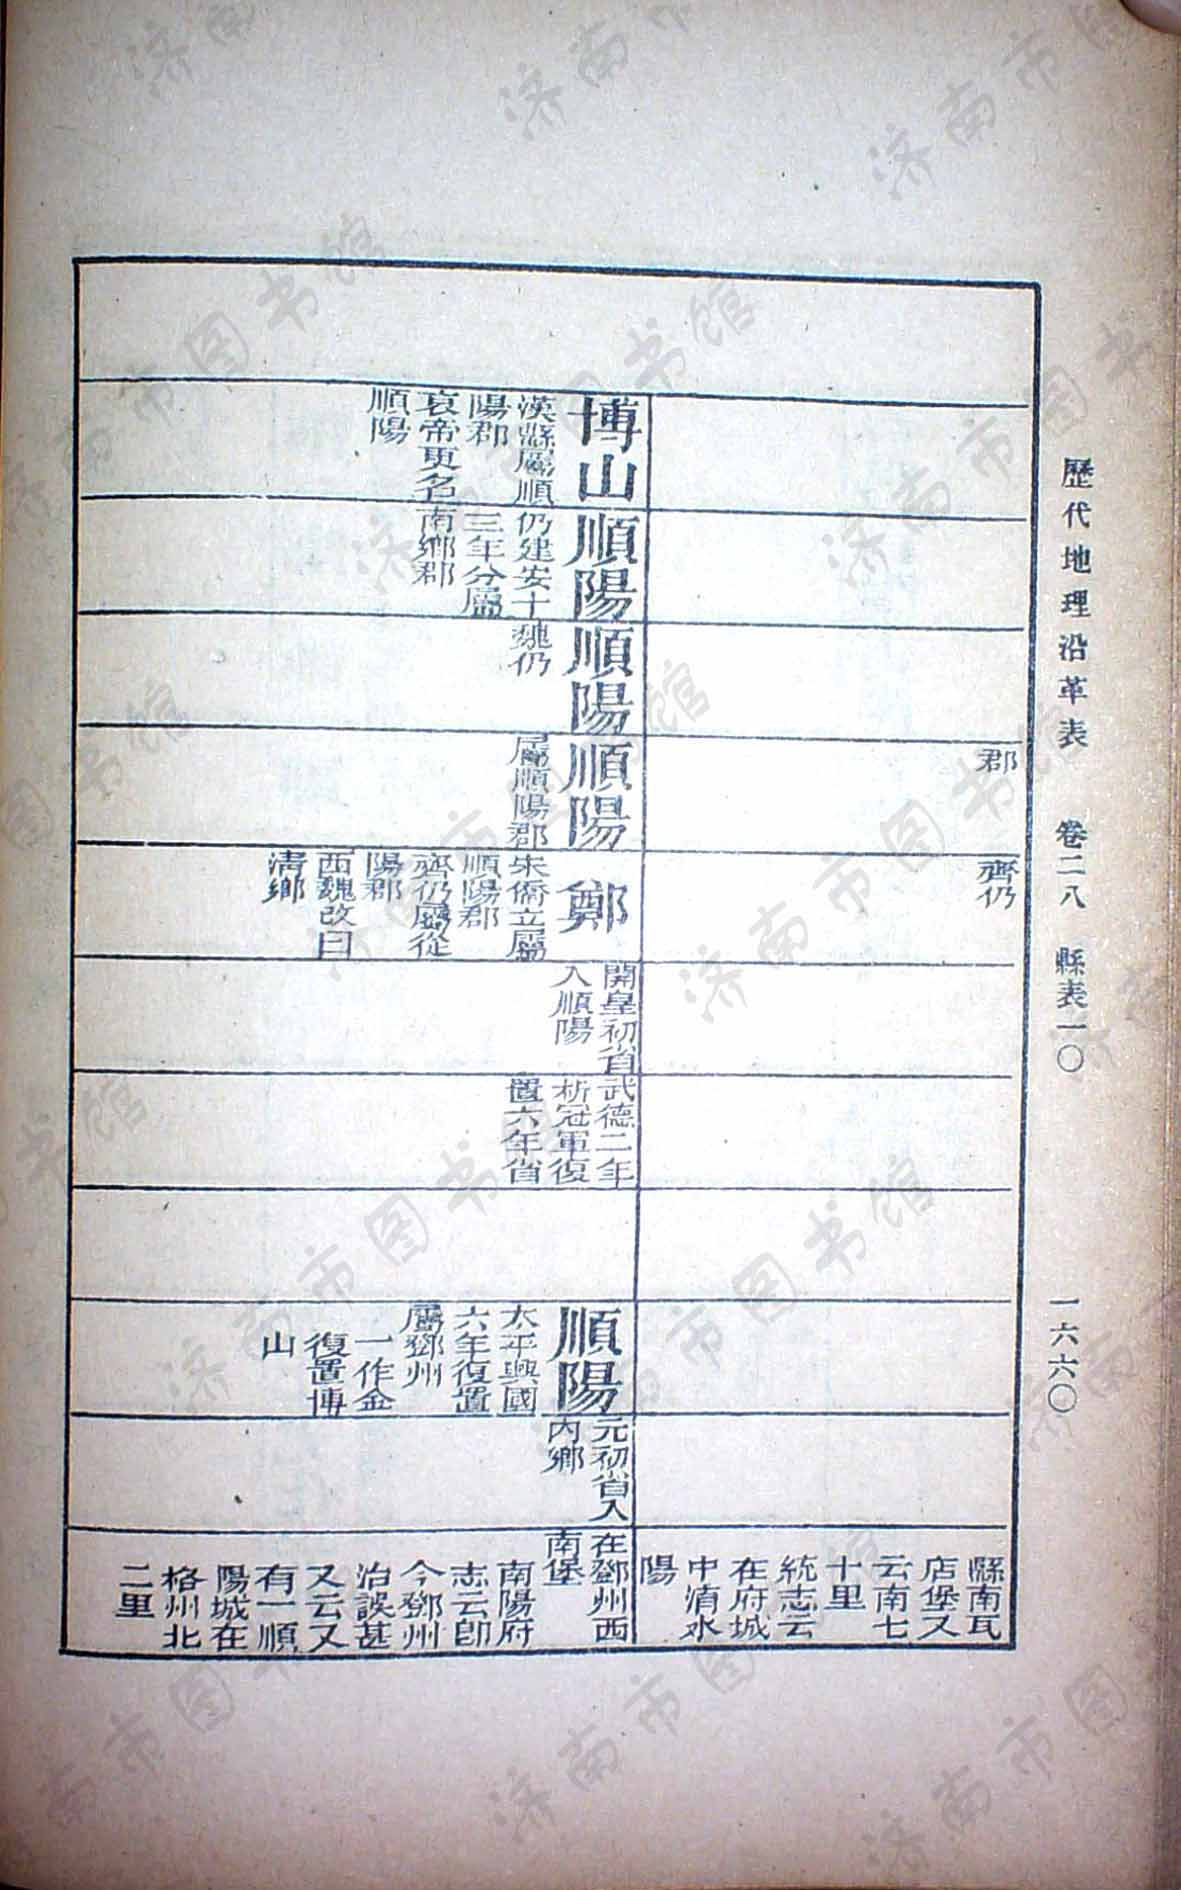 歷代地理沿革表
卷二八
縣表一〇
一六六〇
郡
齊仍
縣南瓦
店堡又
云南七
十里
統志云
在府城
中淯水
陽
博山
漢縣屬順
陽郡
哀帝更名
順陽
順陽
仍建安十
三年分屬
南鄉郡
順陽
魏仍
順陽
屬順陽郡
鄭
宋僑立屬
順陽郡
齊仍屬從
陽郡
西魏改曰
清鄉
開皇初省
入順陽
武德二年
析冠軍復
置六年省
順陽
太平興國
六年復置
屬鄧州
一作金
復置博
山
元初省入
內鄉
在鄧州西
南堡
南陽府
志云卽
今鄧州
治誤甚
又云又
有一順
陽城在
格州北
二里
济南市图书馆